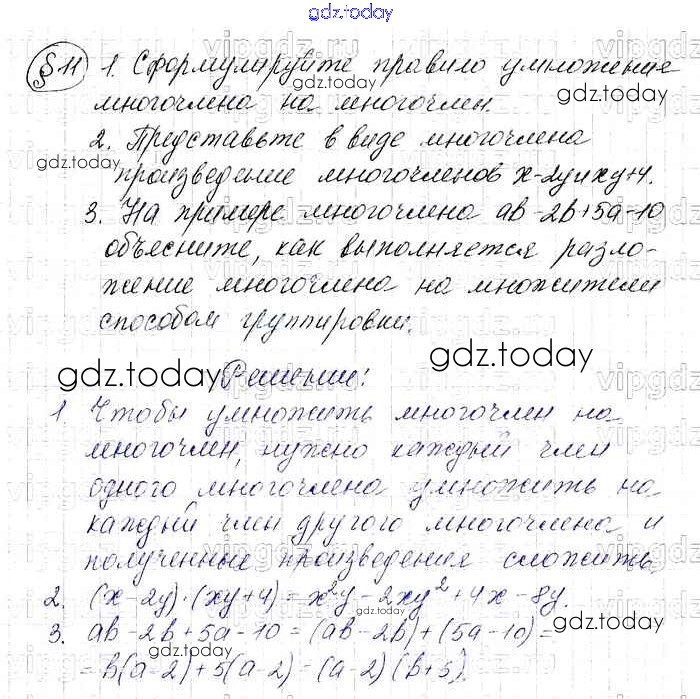 gdz.today
§ 11 1. Сформулируйте правило умножения
многочлена на многочлен.
2. Представьте в виде многочлена
произведение многочленов x-2y и xy+4.
3. На примере многочлена ab-2b+5a-10
объясните, как выполняется разло-
жение многочлена на множители
способом группировки.
Решение:
1. Чтобы умножить многочлен на
многочлен, нужно каждый член
одного многочлена умножить на
каждый член другого многочлена и
полученные произведения сложить.
2. (x-2y)·(xy+4) = x²y - 2xy² + 4x - 8y.
3. ab-2b+5a-10 = (ab-2b)+(5a-10) =
= b(a-2)+5(a-2) = (a-2)(b+5).